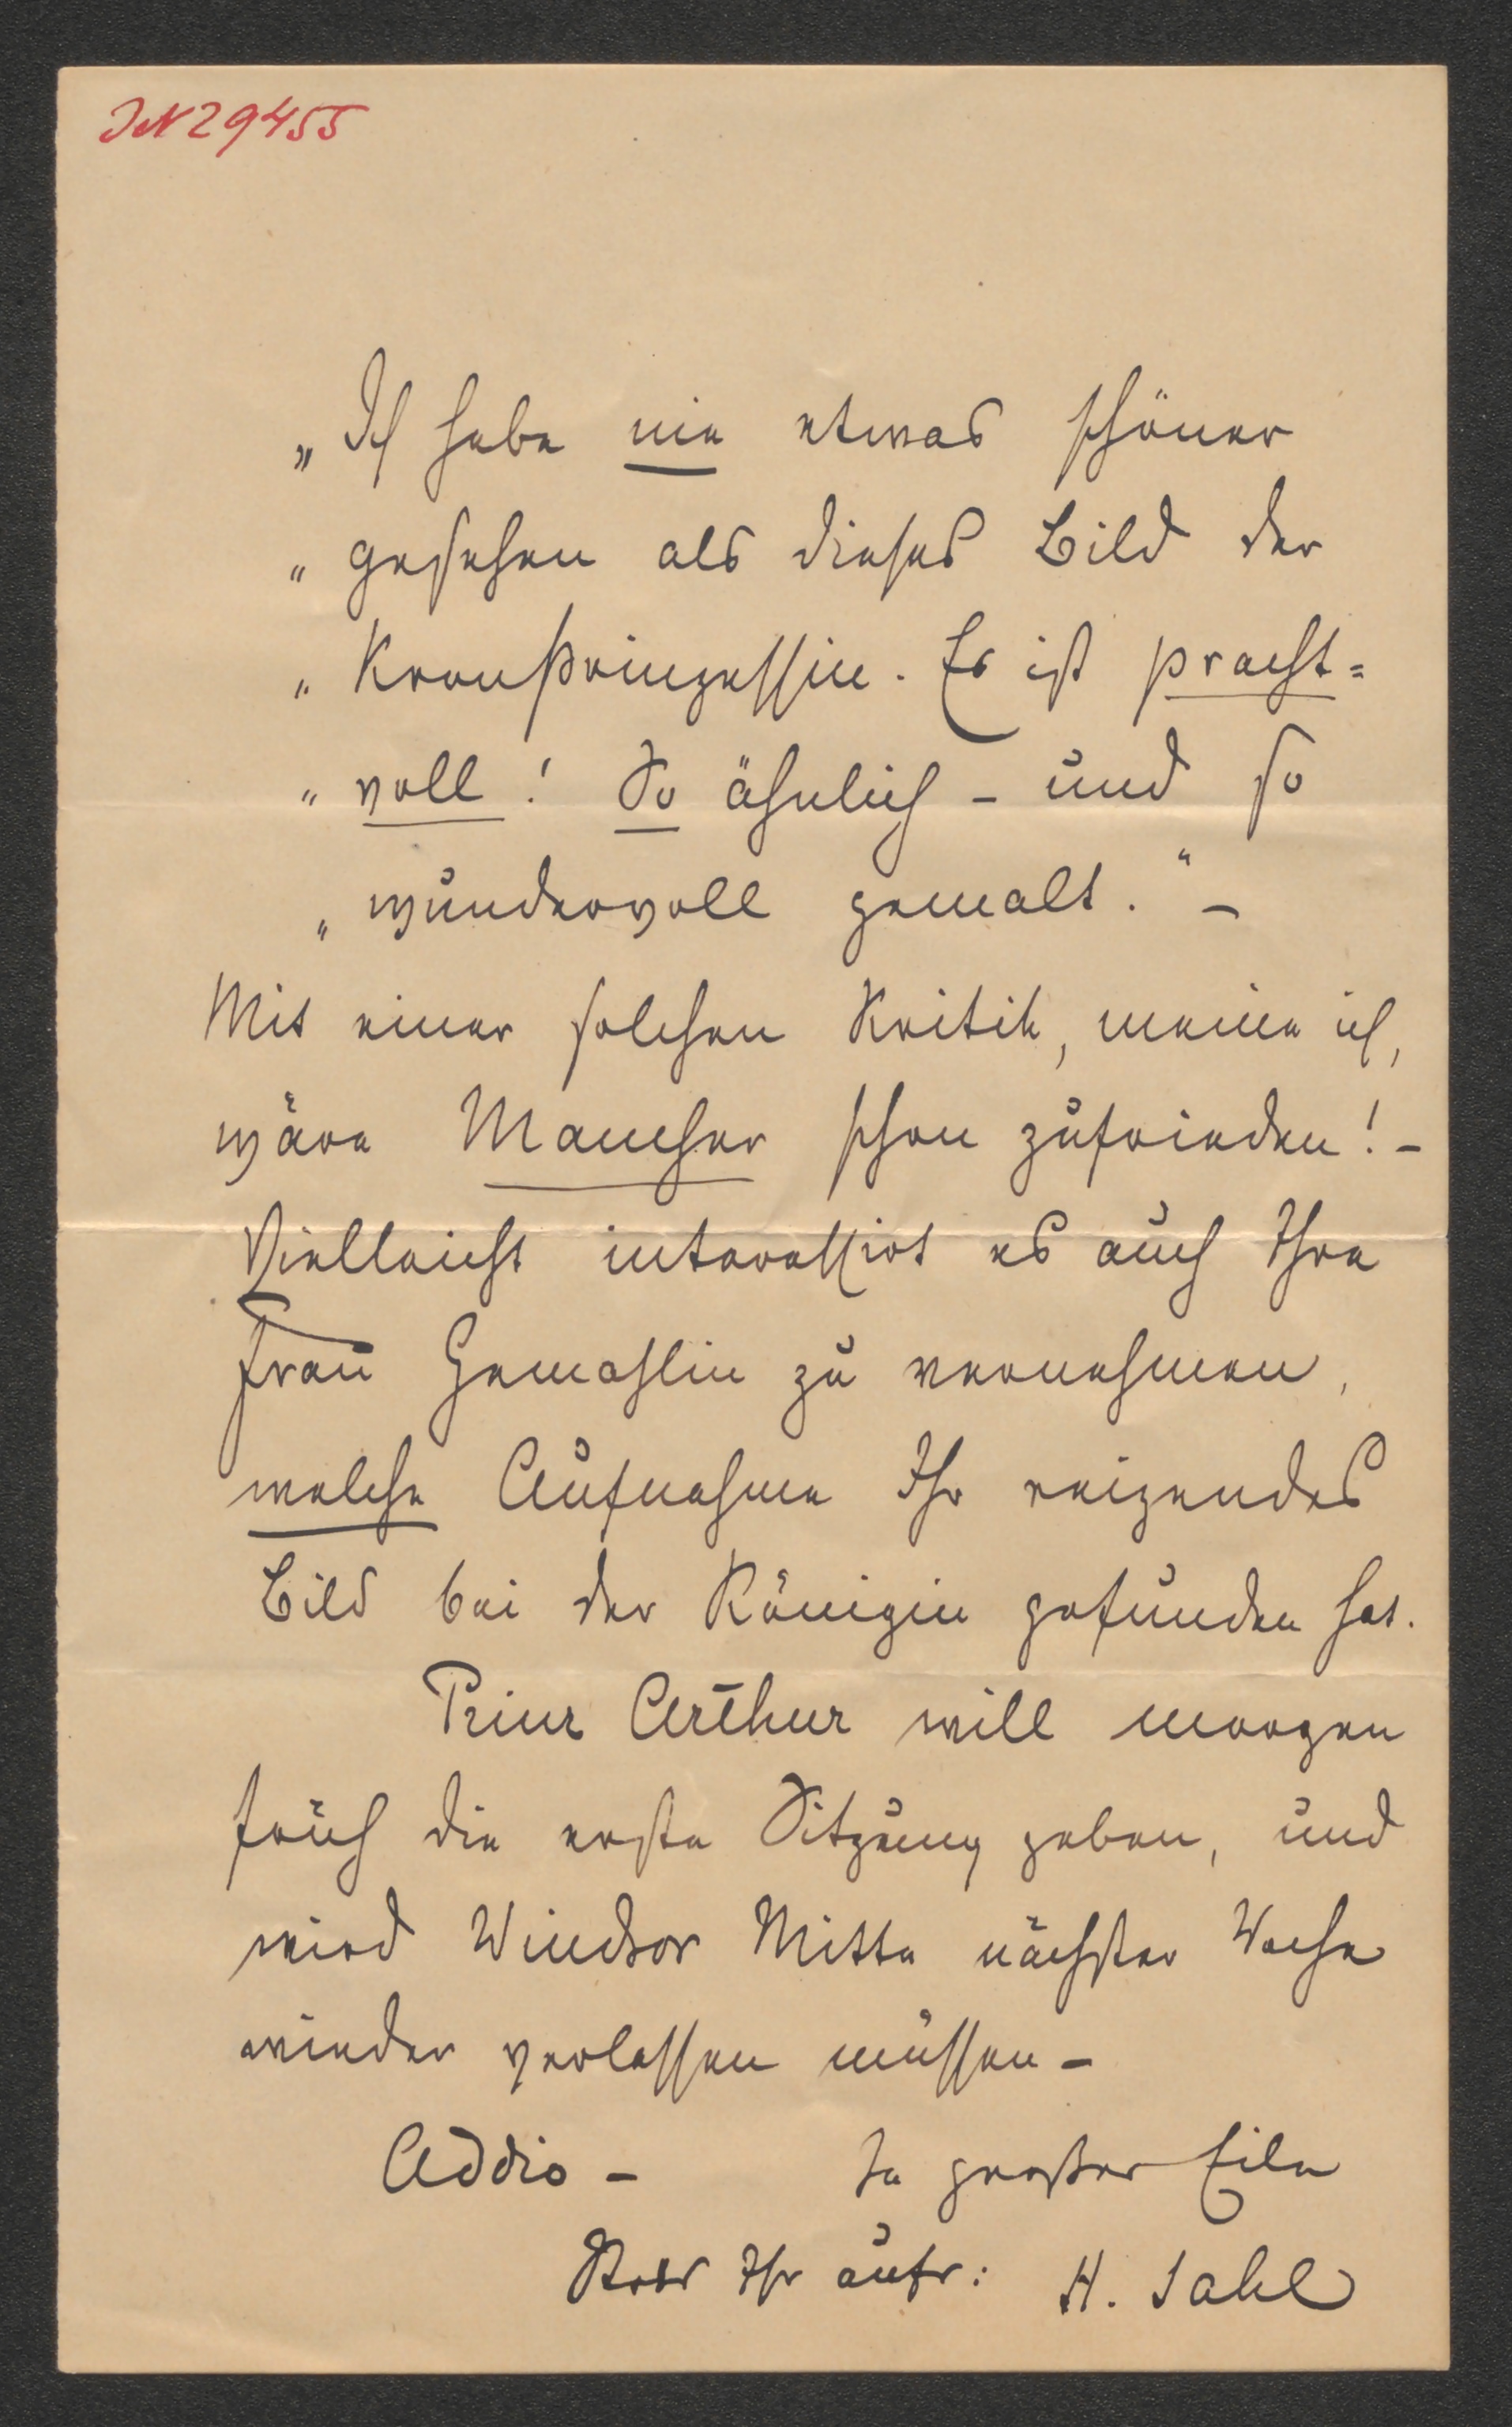 JN 29455
„ Ich habe nie etwas schöner
„ gesehen als dieses Bild der
„ Kronprinzessin. Es ist pracht=
„ voll! So ähnlich – und so
„ wundervoll gemalt.“ –
Mit einer solchen Kritik, meine ich,
wäre Mancher schon zufrieden! –
Vielleicht interessirt es auch Ihre
Frau Gemahlin zu vernehmen,
welche Aufnahme Ihr reizendes
Bild bei der Königin gefunden hat.
Prinz Arthur will morgen
früh die erste Sitzung geben, und
wird Windsor Mitte nächster Woche
wieder verlassen müssen –
Addio – In großer Eile
Stets Ihr aufr: H. Sahl